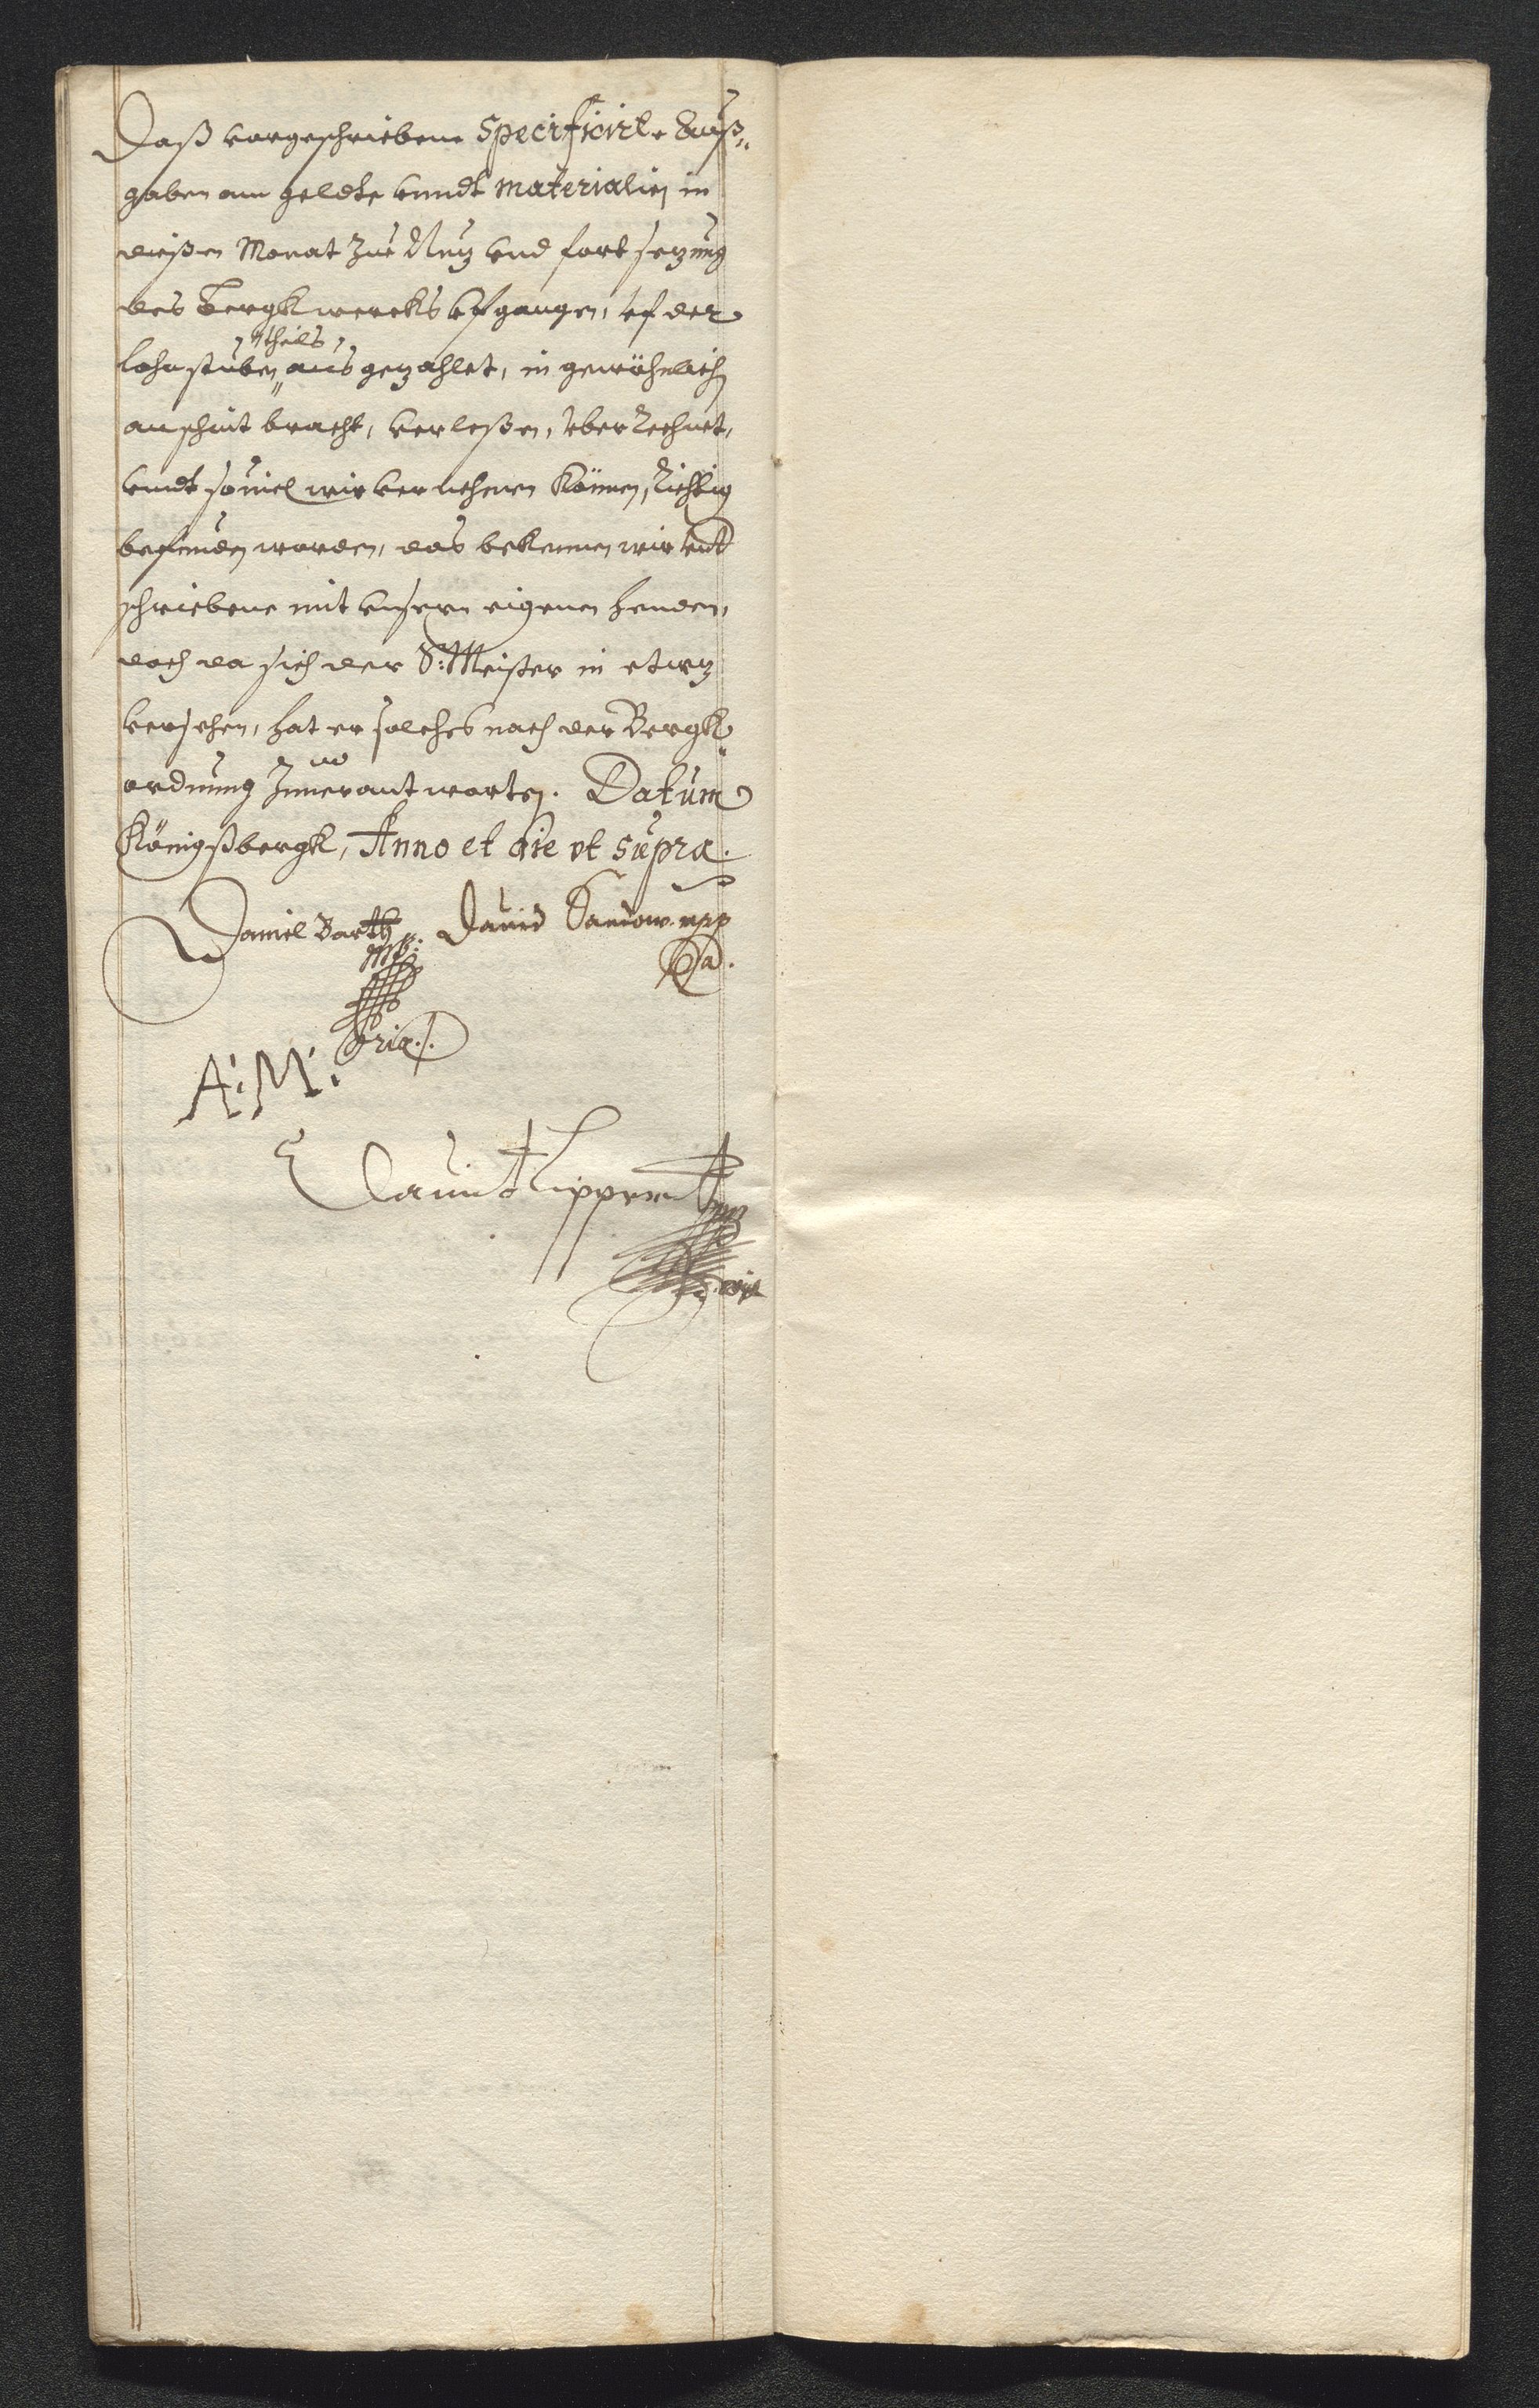 Daß vorgeschriebene Specificirte Auß„
gaben am geldte vnndt Materialien in
dießen Monat Zue Nuz vnd fortsezung
des Bergkwercks vfgangen, vf der
„theils
Lohnstuben„ aus gezahlet, in gewöhnlich
anschnit bracht, verleßen, vberrechnet,
vnndt souiel wir vernehmen Können, Richtig
befunden worden, das bekennen wir vnt
schriebene mit vnsern eigenen henden,
doch da sich der S: Meister in etwz
versehen, hat er solches nach der Bergk„
ordnung Zuuerantworten. Datum
Königßbergk, Anno et die vt supra.
Daniel Barth David Sandow mpp
Mp: a.
pria./.
A: M:
Dauit Lippert